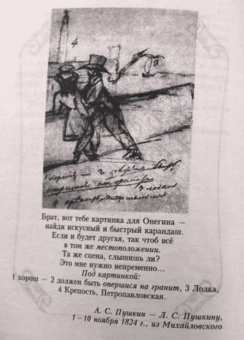 4
Брат, вот тебе картинка для Онегина —
найди искусный и быстрый карандаш.
Если и будет другая, так чтоб всё
в том же местоположении.
Та же сцена, слышишь ли?
Это мне нужно непременно...
Под картинкой:
1 хорош — 2 должен быть опершися на гранит, 3 Лодка,
4 Крепость, Петропавловская.
А. С. Пушкин — Л. С. Пушкину,
1 – 10 ноября 1824 г., из Михайловского